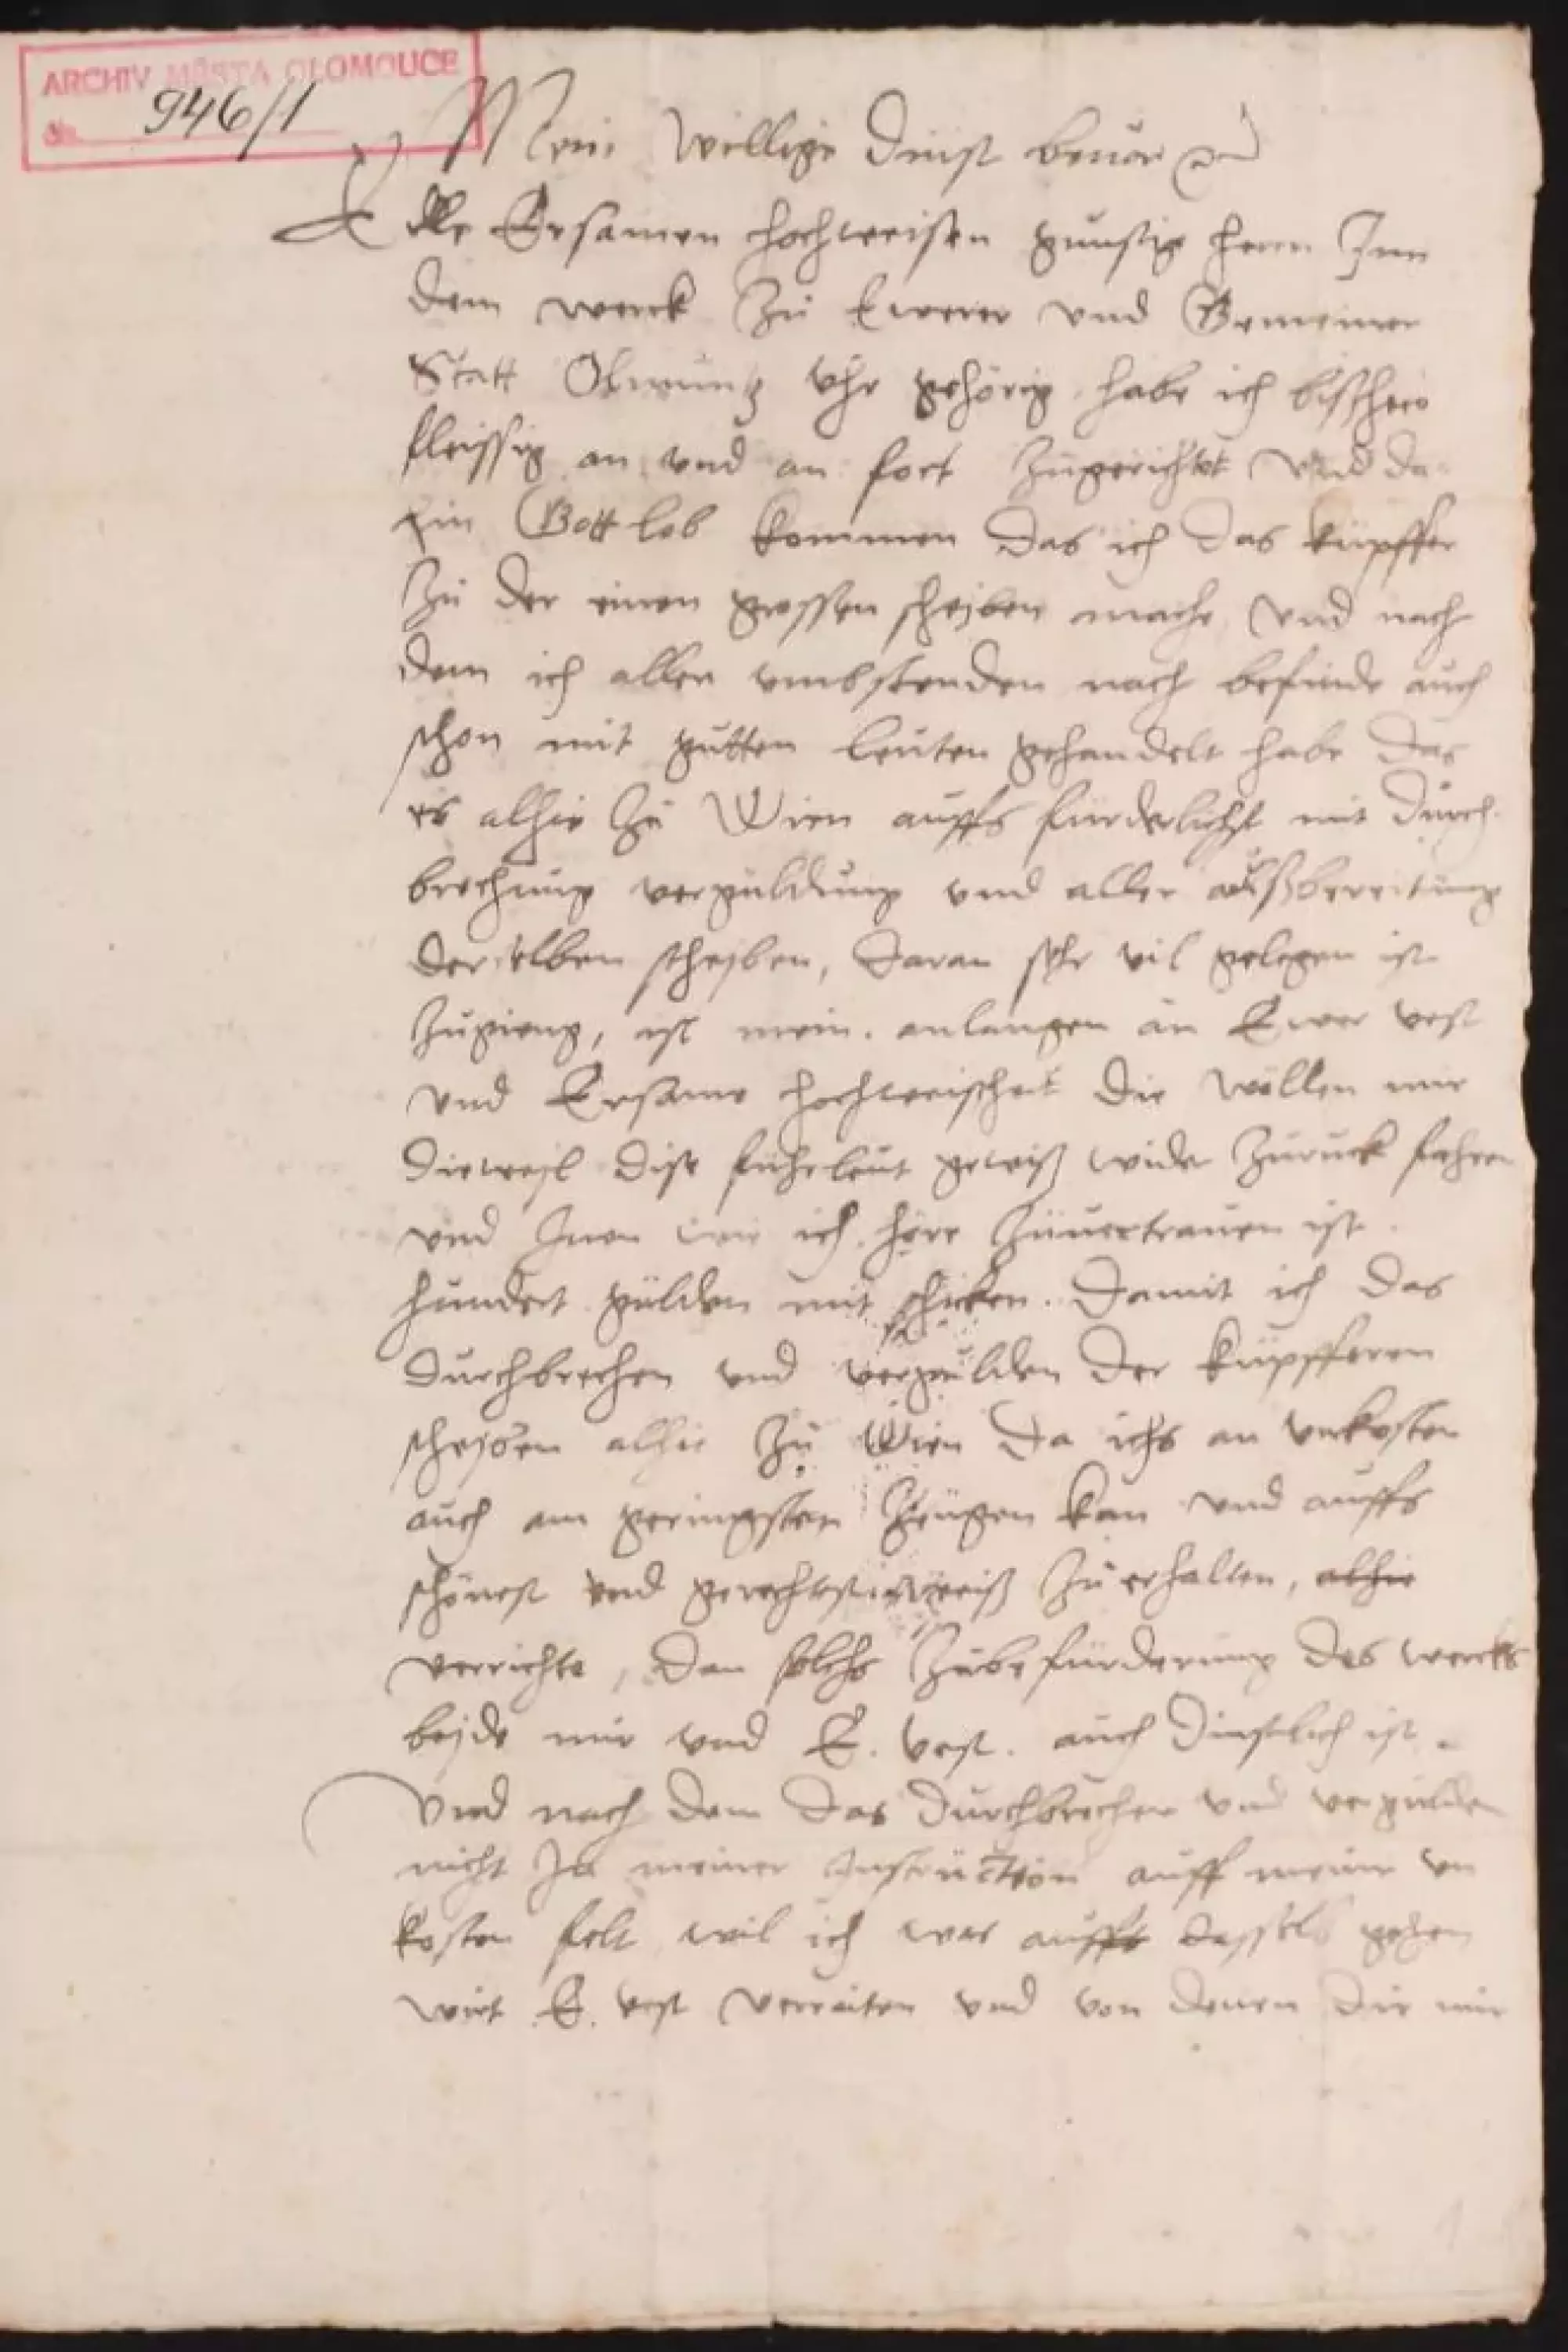 ARCHIV MĚSTA OLOMOUCE
946/1
Mein willige dinst beuor
Edle Ersamen hochweisen gunstig herrn Inn
dem werck zu Ewerer vnd Gemeiner
Statt Olmuntz vhr gehörig habe ich bisshero
fleissig an vnd an fort zugerichtet vnd da
hin Gott lob kommen das ich das kupffer
zu der einen grossen scheiben mache vnd nach
dem ich allen vmbstenden nach befinde auch
schon mit gutten leuten gehandelt habe das
es alhie zu Wien auffs fürderlichst mit durch
brechung vergüldung vnd aller außbereitung
derselben scheiben, daran sehr vil gelegen ist
zugieng, ist mein anlangen an Ewer vest
vnd Ersame hochweischeit die wöllen mir
dieweyl dise fuhrleut gewiß wider zuruck fahren
vnd Inen wie ich höre zuuertrauen ist
hundert gülden mit schicken. Damit ich das
durchbrechen vnd vergülden der kupfferen
scheiben alhie zu Wien da ichs an vnkosten
auch am geringsten zeugen kan vnd auffs
schönest vnd gerechtist weiß zu erhalten, alhie
verrichte, dan solchs zubefürderung des wercks
beyde mir vnd E. vest. auch dinstlich ist.
Vnd nach dem das durchbrechen vnd vergülden
nicht In meiner Instruction auff meine vn
kosten felt wil ich was auffs dasselb gehen
wirt E. vest verraiten vnd von denen die mir